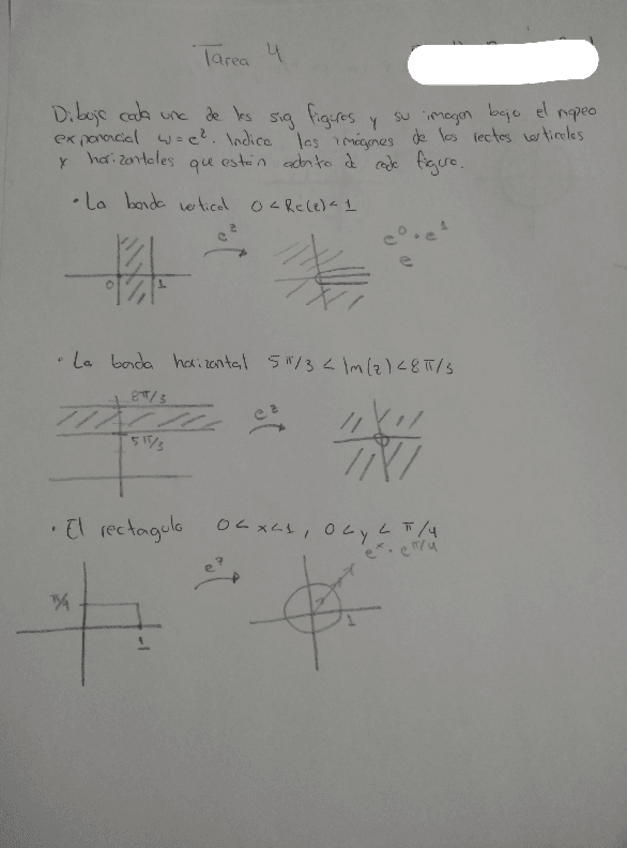 Tarea 4
Dibuje cada una de las sig figuras y su imagen bajo el mapeo
exponencial w = e^z. Indica las imágenes de las rectas verticales
y horizontales que están adentro de cada figura.
• La banda vertical 0 < Re(z) < 1
e^z
e^0 • e^1
e
0 1
• La banda horizontal 5π/3 < Im(z) < 8π/3
8π/3
e^z
5π/3
• El rectagulo 0 < x < 1, 0 < y < π/4
e^x • e^π/4
e^z
π/4
1
1